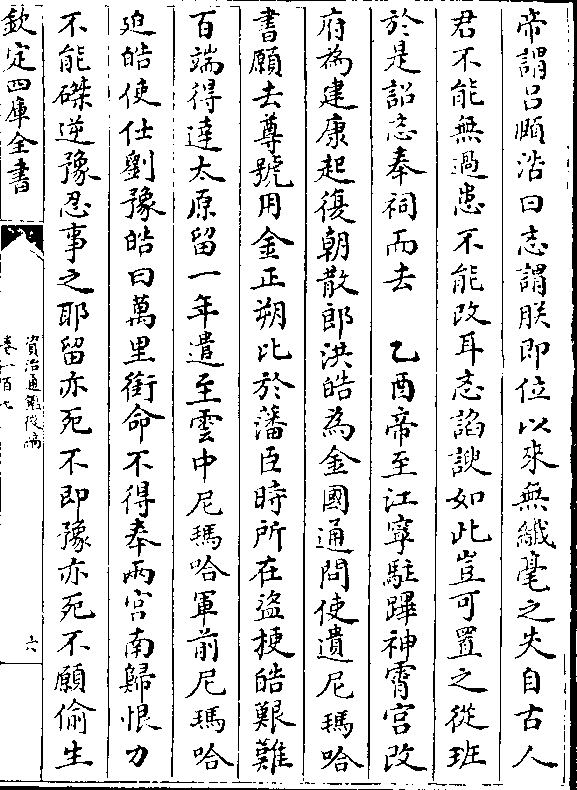 帝謂呂頤浩曰志謂朕即位以來無纖毫之失自古人
君不能無過患不能改耳志諂諛如此豈可置之從班
於是詔志奉祠而去　乙酉帝至江寧駐蹕神霄宮改
府為建康起復朝散郎洪皓為金國通問使遺尼瑪哈
書願去尊號用金正朔比於藩臣時所在盜梗皓艱難
百端得達太原留一年遣至雲中尼瑪哈軍前尼瑪哈
迫皓使仕劉豫皓曰萬里銜命不得奉兩宮南歸恨力
不能磔逆豫忍事之耶留亦死不即豫亦死不願偷生
欽定四庫全書
資治通鑑後編
卷一百七
六